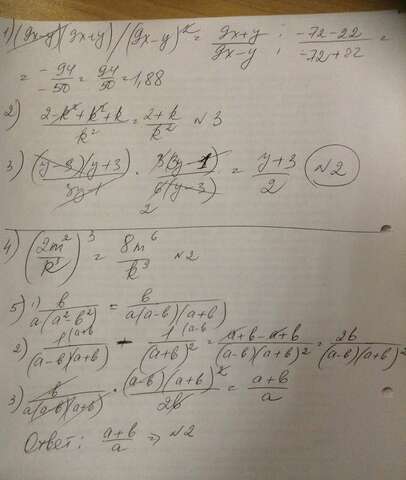 1) (9x-y)(9x+y)/(9x-y)² = (9x+y)/(9x-y) ; (-72-22)/(-72+22) =
= -94/-50 = 94/50 = 1,88
2) (2-k²+k²+k)/k² = (2+k)/k² №3
3) (y-3)(y+3)/(3y-1) · 3(3y-1)/6(y-3) = (y+3)/2 №2
2
4) (2m²/k)³ = 8m⁶/k³ №2
5) 1) b/a(a²-b²) = b/a(a-b)(a+b)
2) 1(a+b/(a-b)(a+b) - 1(a-b/(a+b)² = (a+b-a+b)/(a-b)(a+b)² = 2b/(a-b)(a+b)²
3) b/a(a-b)(a+b) · (a-b)(a+b)²/2b = (a+b)/a
Ответ: (a+b)/a => №2